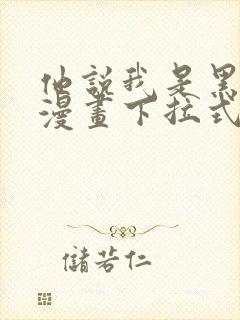 他說我是黑
漫畫下拉式
儲若仁